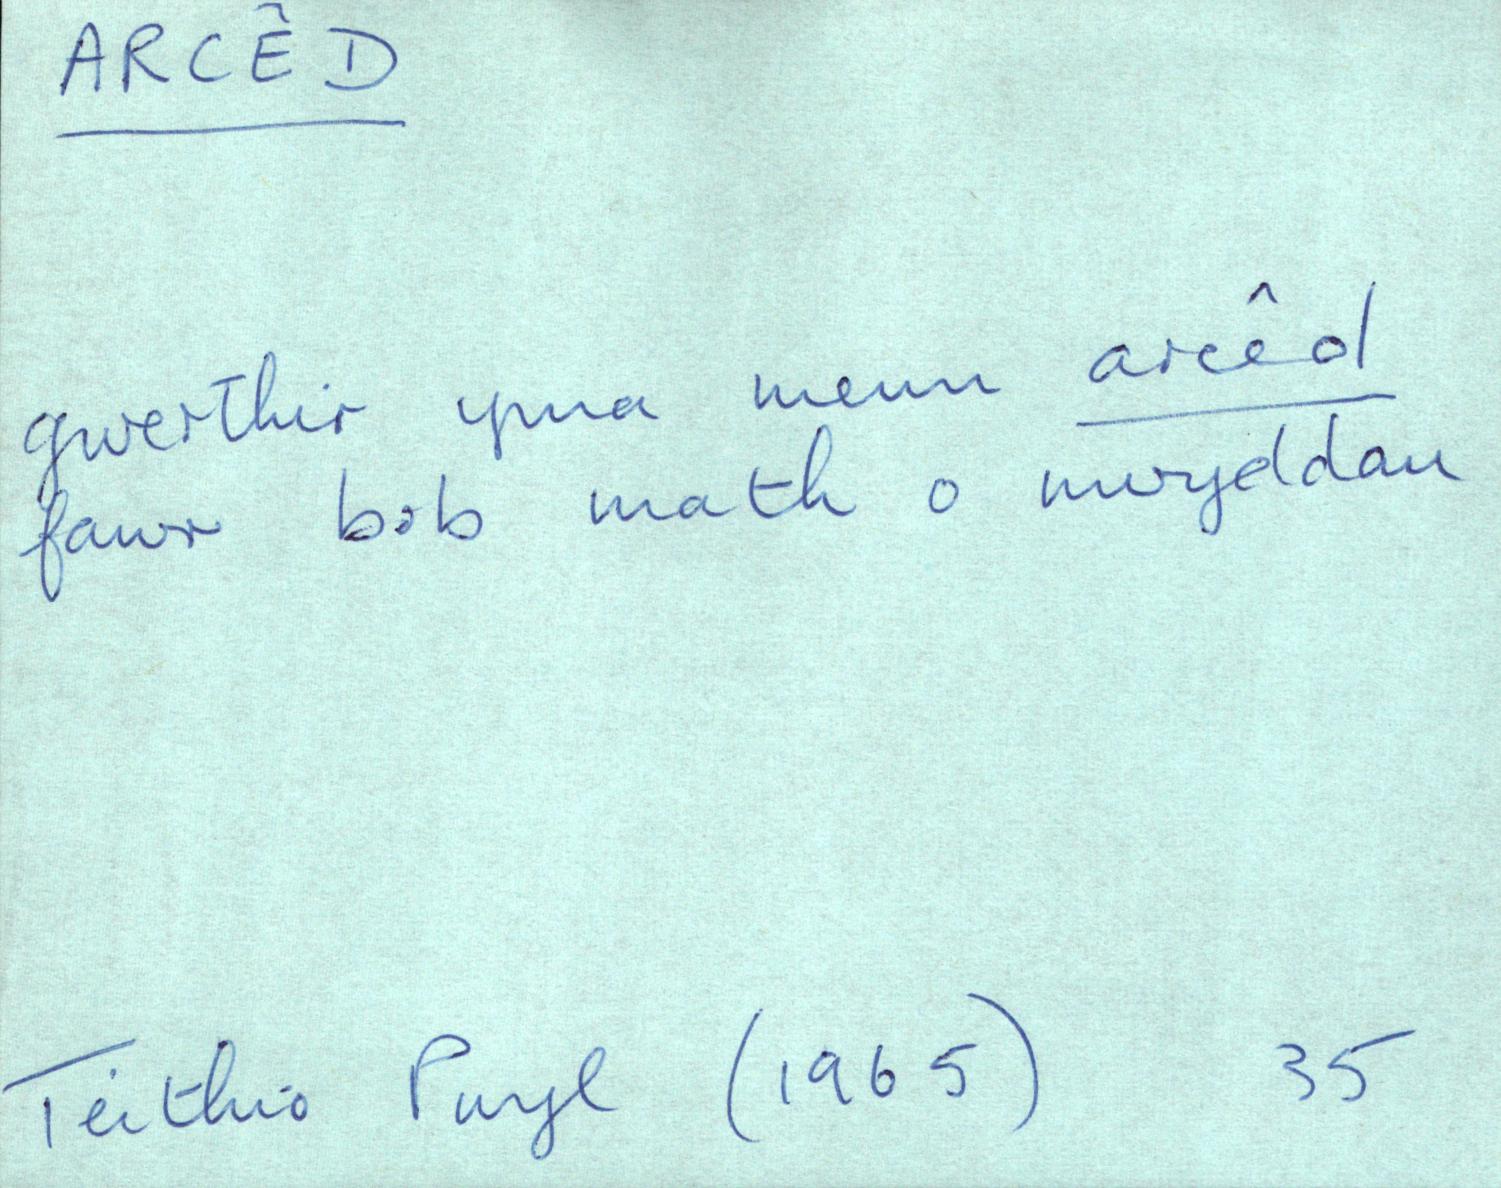 ARCÊD
gwerthir yna mewn arcêd
fawr bob math o nwyddau
Teithio Pwyl (1965) 35